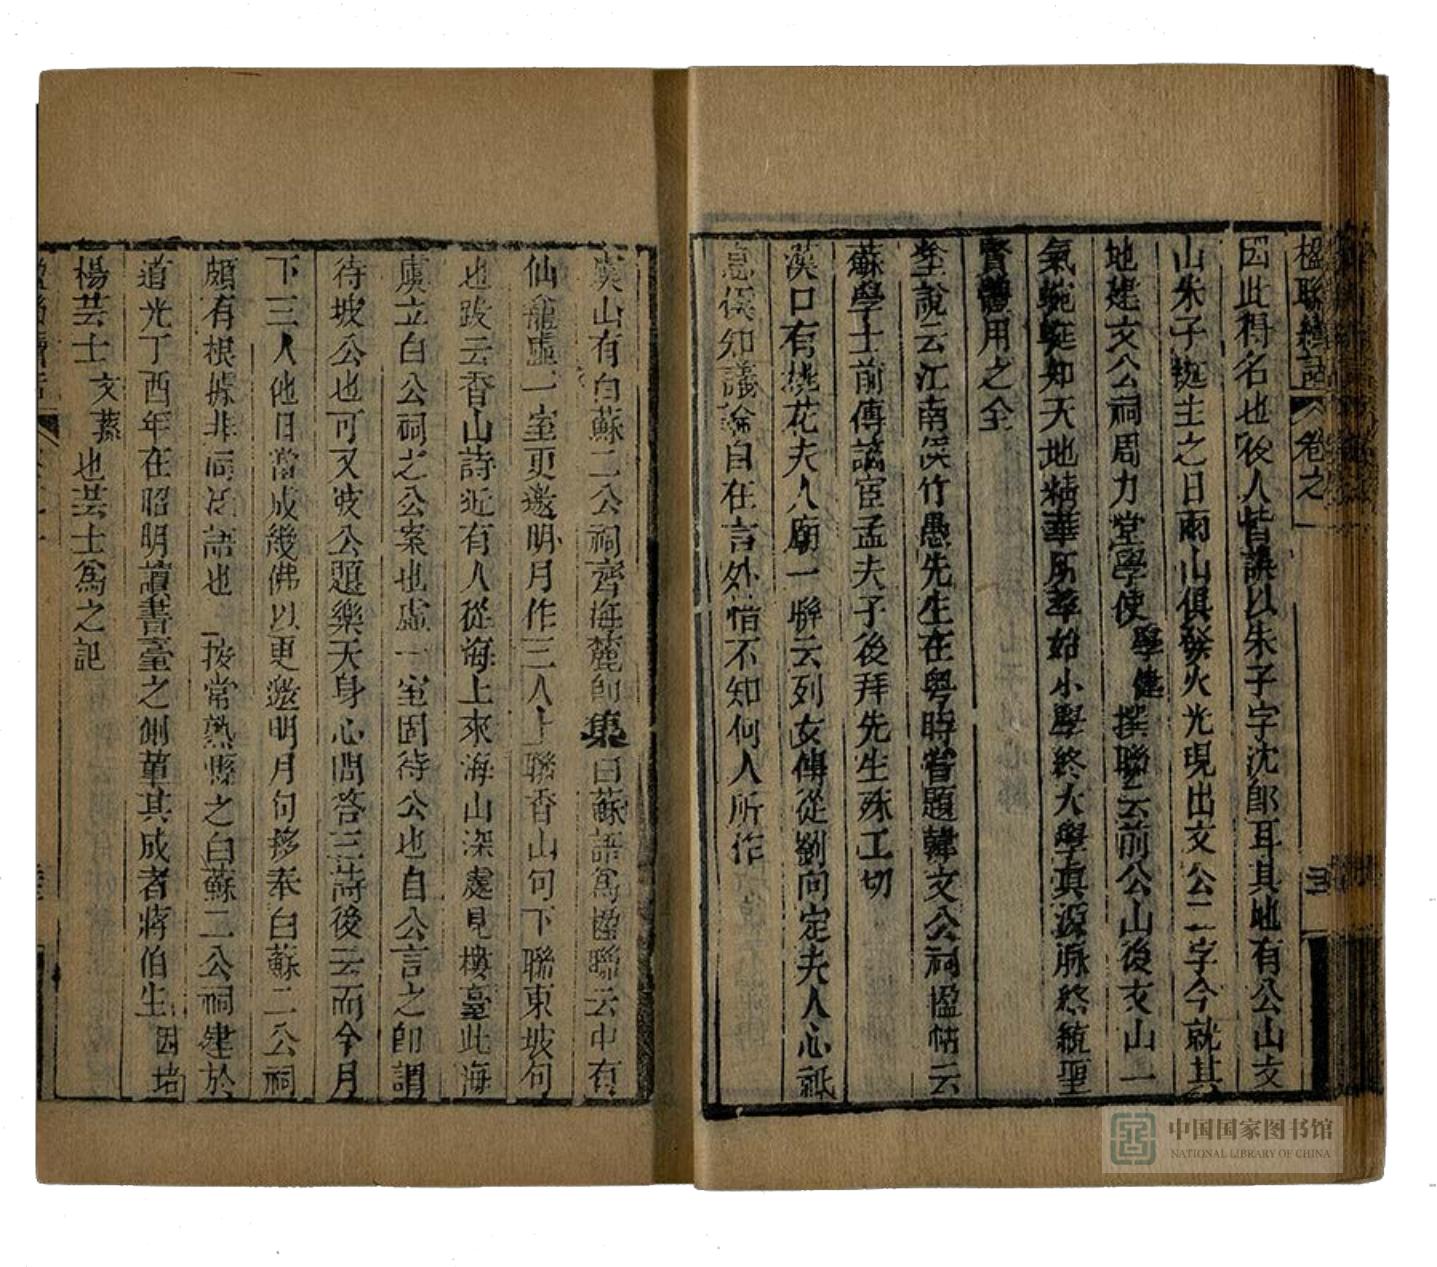 楹聯續話 卷之一 三
因此得名也後人皆誤以朱子字沈郎耳其地有公山文
山朱子誕生之日兩山俱發火光現出文公二字今就其
地建文公祠周力堂學使學健撰聯云前公山後文山一
氣蜿蜒知天地精華所萃始小學終大學真源脈絡統聖
賢體用之全
奎說云江南溪竹愚先生在粵時嘗題韓文公祠楹帖云
蘇學士前傳謫宦孟夫子後拜先生殊工切
漢口有桃花夫人廟一聯云列女傳從劉向定夫人心祇
息侯知議論自在言外惜不知何人所作
虞山有白蘇二公祠齊海麓師集白蘇語為楹聯云中有
仙龕虛一室更邀明月作三人上聯香山句下聯東坡句
也跋云香山詩近有人從海上來海山深處見樓臺此海
虞立白公祠之公案也虛一室固待公也自公言之即謂
待坡公也可又坡公題樂天身心問答三詩後云而今月
下三人他日當成幾佛以更邀明月句移奉白蘇二公祠
頗有根據非同泛語也 按常熟縣之白蘇二公祠建於
道光丁酉年在昭明讀書臺之側董其成者蔣伯生因培
楊芸士文蓀也芸士為之記